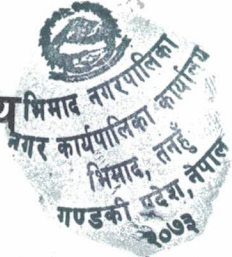 य
भिमाद नगरपालिका
नगर कार्यपालिका कार्यालय
भिमाद, तनहुँ
गण्डकी प्रदेश, नेपाल
२०७३